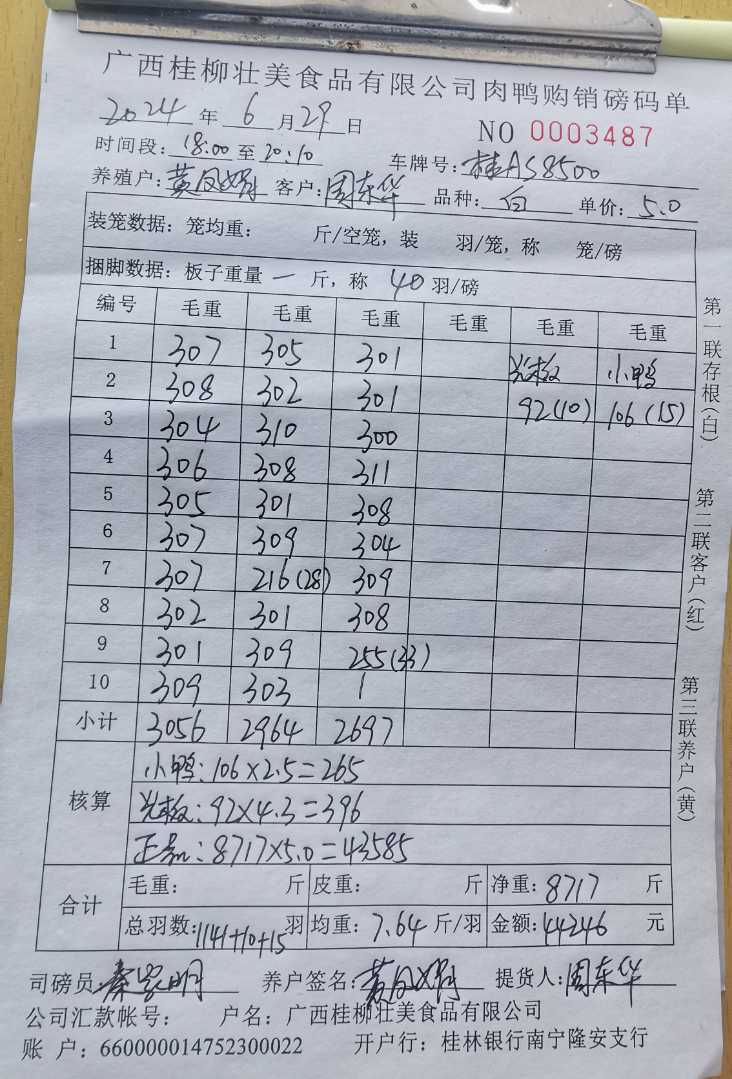 广西桂柳壮美食品有限公司肉鸭购销磅码单
2024 年 6 月 29 日
NO 0003487
时间段: 18:00 至 20:10 车牌号: 桂AS8500
养殖户: 黄凤娟 客户: 周东华 品种: 白 单价: 5.0
装笼数据: 笼均重: 斤/空笼, 装 羽/笼, 称 笼/磅
捆脚数据: 板子重量 一 斤, 称 40 羽/磅
编号 毛重 毛重 毛重 毛重 毛重 毛重
1 307 305 301 光板 小鸭
2 308 302 301 92(10) 106(15)
3 304 310 300
4 306 308 311
5 305 301 308
6 307 309 304
7 307 216(28) 309
8 302 301 308
9 301 309 255(33)
10 309 303 /
小计 3056 2964 2697
核算
小鸭: 106×2.5=265
光板: 92×4.3=396
正品: 8717×5.0=43585
合计
毛重: 斤 皮重: 斤 净重: 8717 斤
总羽数: 1141+10+15 羽 均重: 7.64 斤/羽 金额: 44246 元
司磅员: 秦 明 养户签名: 黄凤娟 提货人: 周东华
公司汇款帐号: 户名: 广西桂柳壮美食品有限公司
账 户: 660000014752300022 开户行: 桂林银行南宁隆安支行
第一联存根(白)
第二联客户(红)
第三联养户(黄)